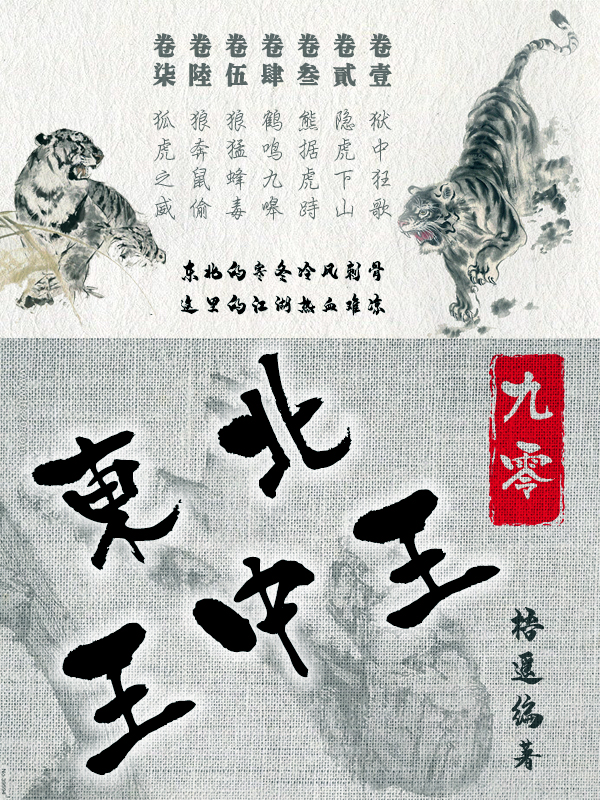 卷壹 狱中狂歌
卷貳 隐虎下山
卷叁 熊据虎跱
卷肆 鹤鸣九皋
卷伍 狼猛蜂毒
卷陸 狼奔鼠偷
卷柒 狐虎之威
东北的寒冬冷风刺骨
这里的江湖热血难凉
九零
東北王中王
梧遲编著